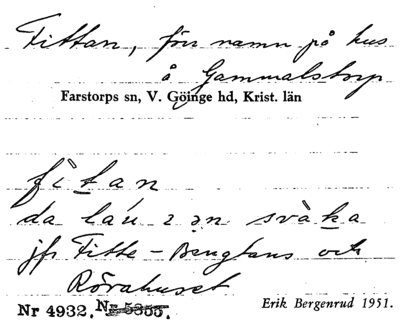 Fittan, förr namn på hus
å Gammalstorp
Farstorps sn, V. Göinge hd, Krist. län
fìtan
da láu i en svàka
jfr Fitte-Bengtans och
Rörahuset
Nr 4932. Nr 5355.
Erik Bergenrud 1951.